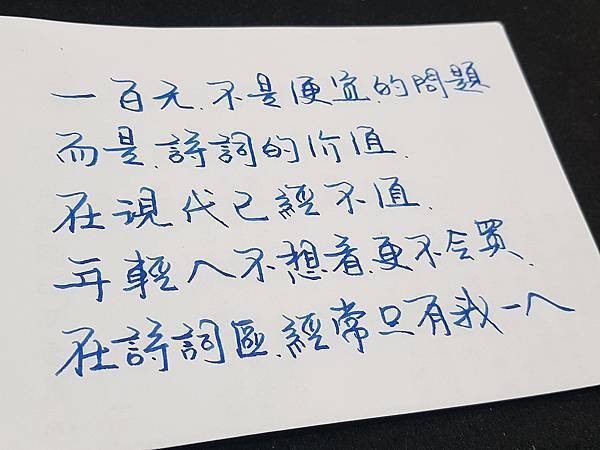 一百元.不是便宜.的問題
而是.詩詞的价值.
在現代已經不值.
年輕人不想看.更不会買.
在詩詞區.經常只有我一人